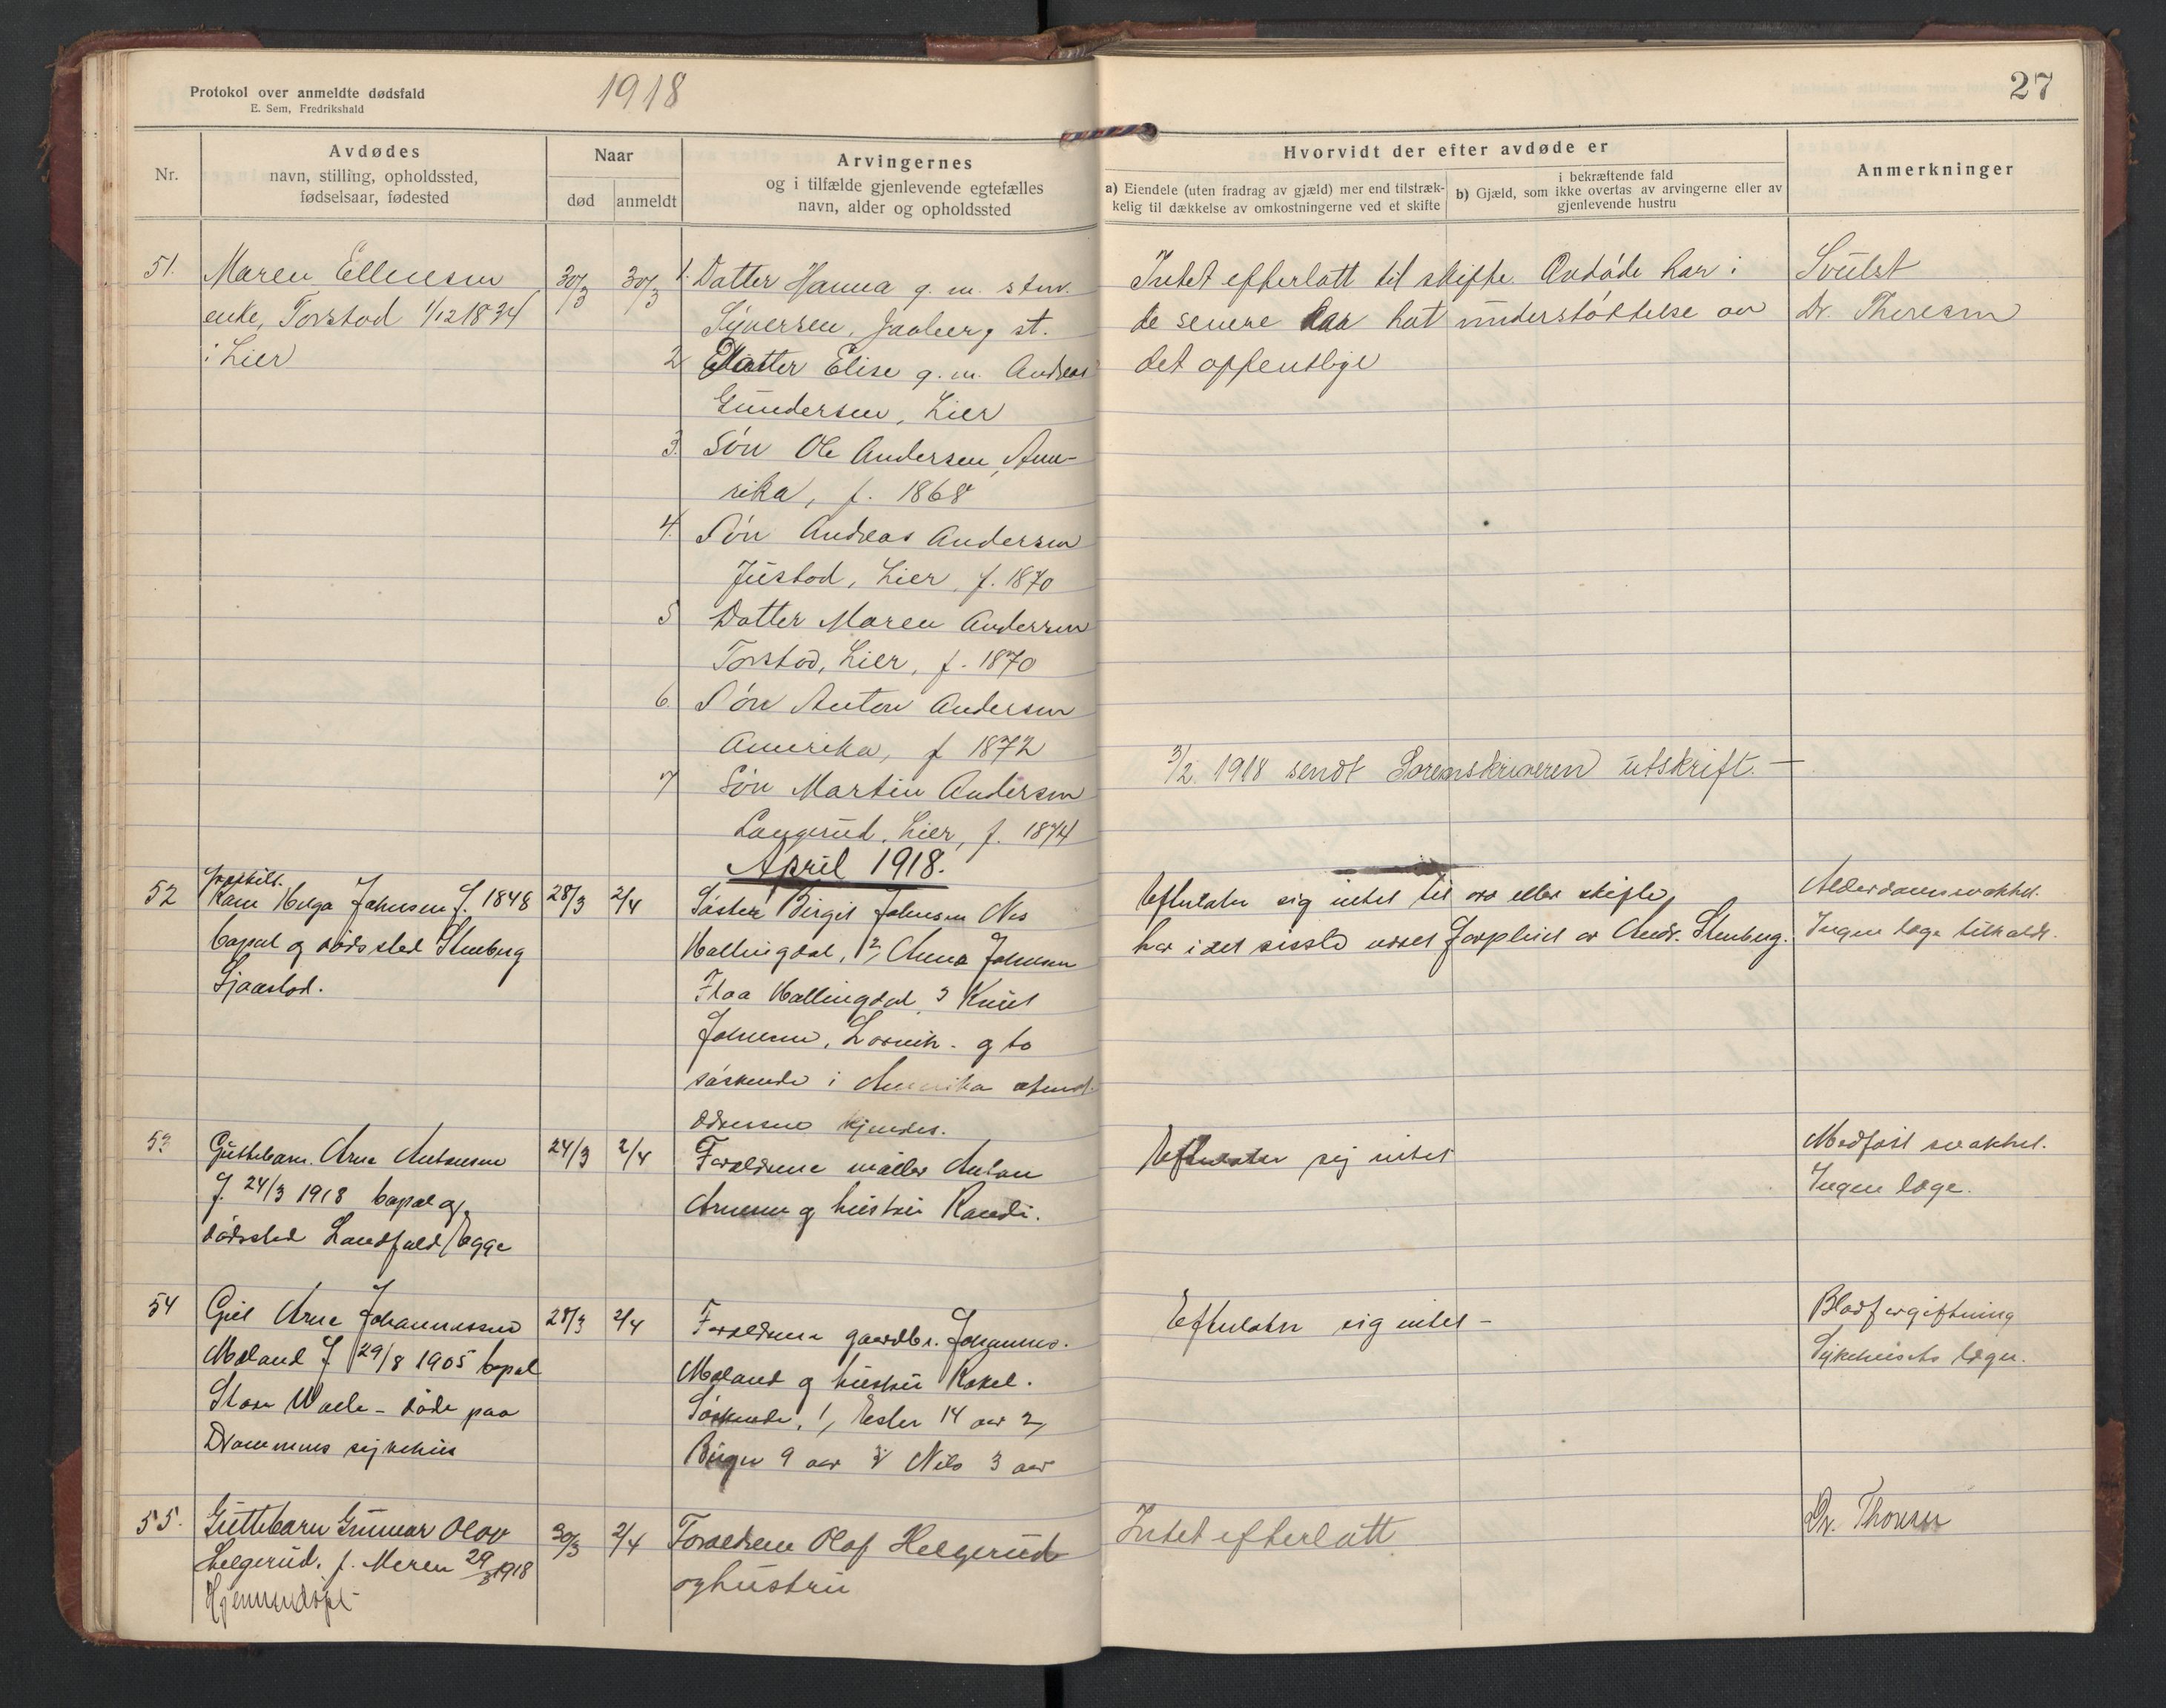 Protokol over anmeldte dødsfald
E. Sem, Fredrikshald
1918
27
Nr.
Avdødes
navn, stilling, opholdssted,
fødselsaar, fødested
Naar
død
anmeldt
Arvingernes
og i tilfælde gjenlevende egtefælles
navn, alder og opholdssted
Hvorvidt der efter avdøde er
a) Eiendele (uten fradrag av gjæld) mer end tilstræk-
kelig til dækkelse av omkostningerne ved et skifte
i bekræftende fald
b) Gjæld, som ikke overtas av arvingerne eller av
gjenlevende hustru
Anmerkninger
51.
Maren Ellensen
enke, Torstad 1/12 1834
i Lier
30/3
30/3
1. Datter Hanna g. m.
Syversen, st.
2 Datter Elise g. m. Andreas
Gundersen, Lier
3. Søn Ole Andersen, Ame-
rika, f. 1868
4. Søn Andreas Andersen
Justad, Lier, f. 1870
5 Datter Maren Andersen
Torstad, Lier, f. 1870
6. Søn Anton Andersen
Amerika, f 1872
7 Søn Martin Andersen
Langerud, Lier, f. 1874
Intet efterlatt til skifte. Avdøde har i
de senere aar hat understøttelse av
det offentlige
Svulst
Dr. Thoresen
3/2. 1918 sendt Sorenskriveren utskrift. —
April 1918.
52
Fraskilt.
Kone Helga Johnsen f. 1848
bopæl og dødssted Stenberg
Sjaastad.
28/3
2/4
Søster Birgit Johnsen Nes
Hallingdal, 2, Anna Johnsen
Flaa Hallingdal, 3 Knut
Johnsen, Larvik. og to
søskende i Amerika
adressen kjendes.
Efterlater sig intet til arv eller skifte,
har i det sisste været forpleiet av Andr. Stenberg.
Alderdomssvakhet.
Ingen læge tilkaldt.
53
Guttebarn. Arne Antonsen
f. 24/3 1918 bopæl og
dødssted Landfald / Egge
24/3
2/4
Forældrene møller Anton
Arnesen og hustru Randi.
Efterlater sig intet
Medfødt svakhet.
Ingen læge.
54
Gut Arne Johannessen
Moland f 29/8 1905 bopæl
Store Valle – døde paa
Drammens sykehus
28/3
2/4
Forældrene gaardbr. Johannes.
Moland og hustru Rakel.
Søskende, 1, Ester 14 aar 2,
Birger 9 aar 3 Nils 3 aar
Efterlater sig intet –
Blodforgiftning
Sykehusets læger.
55.
Guttebarn Gunnar Olav
Helgerud, f. Meren 29/3 1918
30/3
2/4
Forældrene Olaf Helgerud
og hustru
Intet efterlatt
Dr. Thoresen